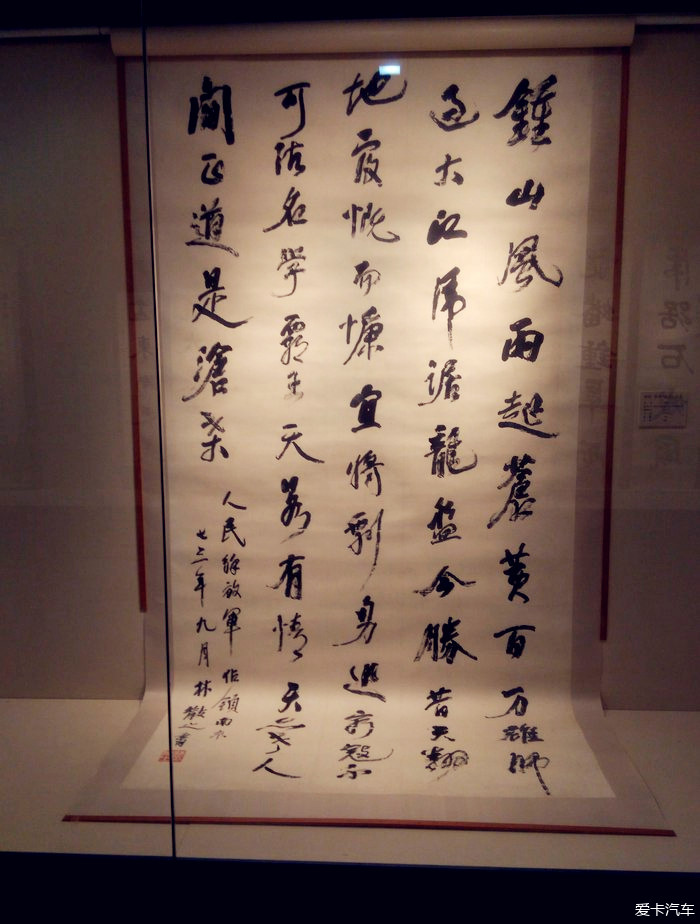 鍾山風雨起蒼黄百万雄師
過大江虎踞龍盤今勝昔天翻
地覆慨而慷宜將剩勇追窮寇不
可沽名學霸王天若有情天亦老人
間正道是滄桑
人民解放軍佔領南京
七三年九月林散之書
爱卡汽车